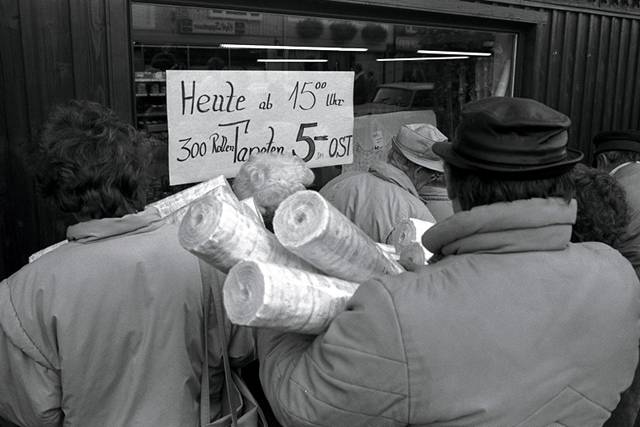 Heute ab 15⁰⁰ Uhr
300 Rollen Tapeten 5,- DM OST